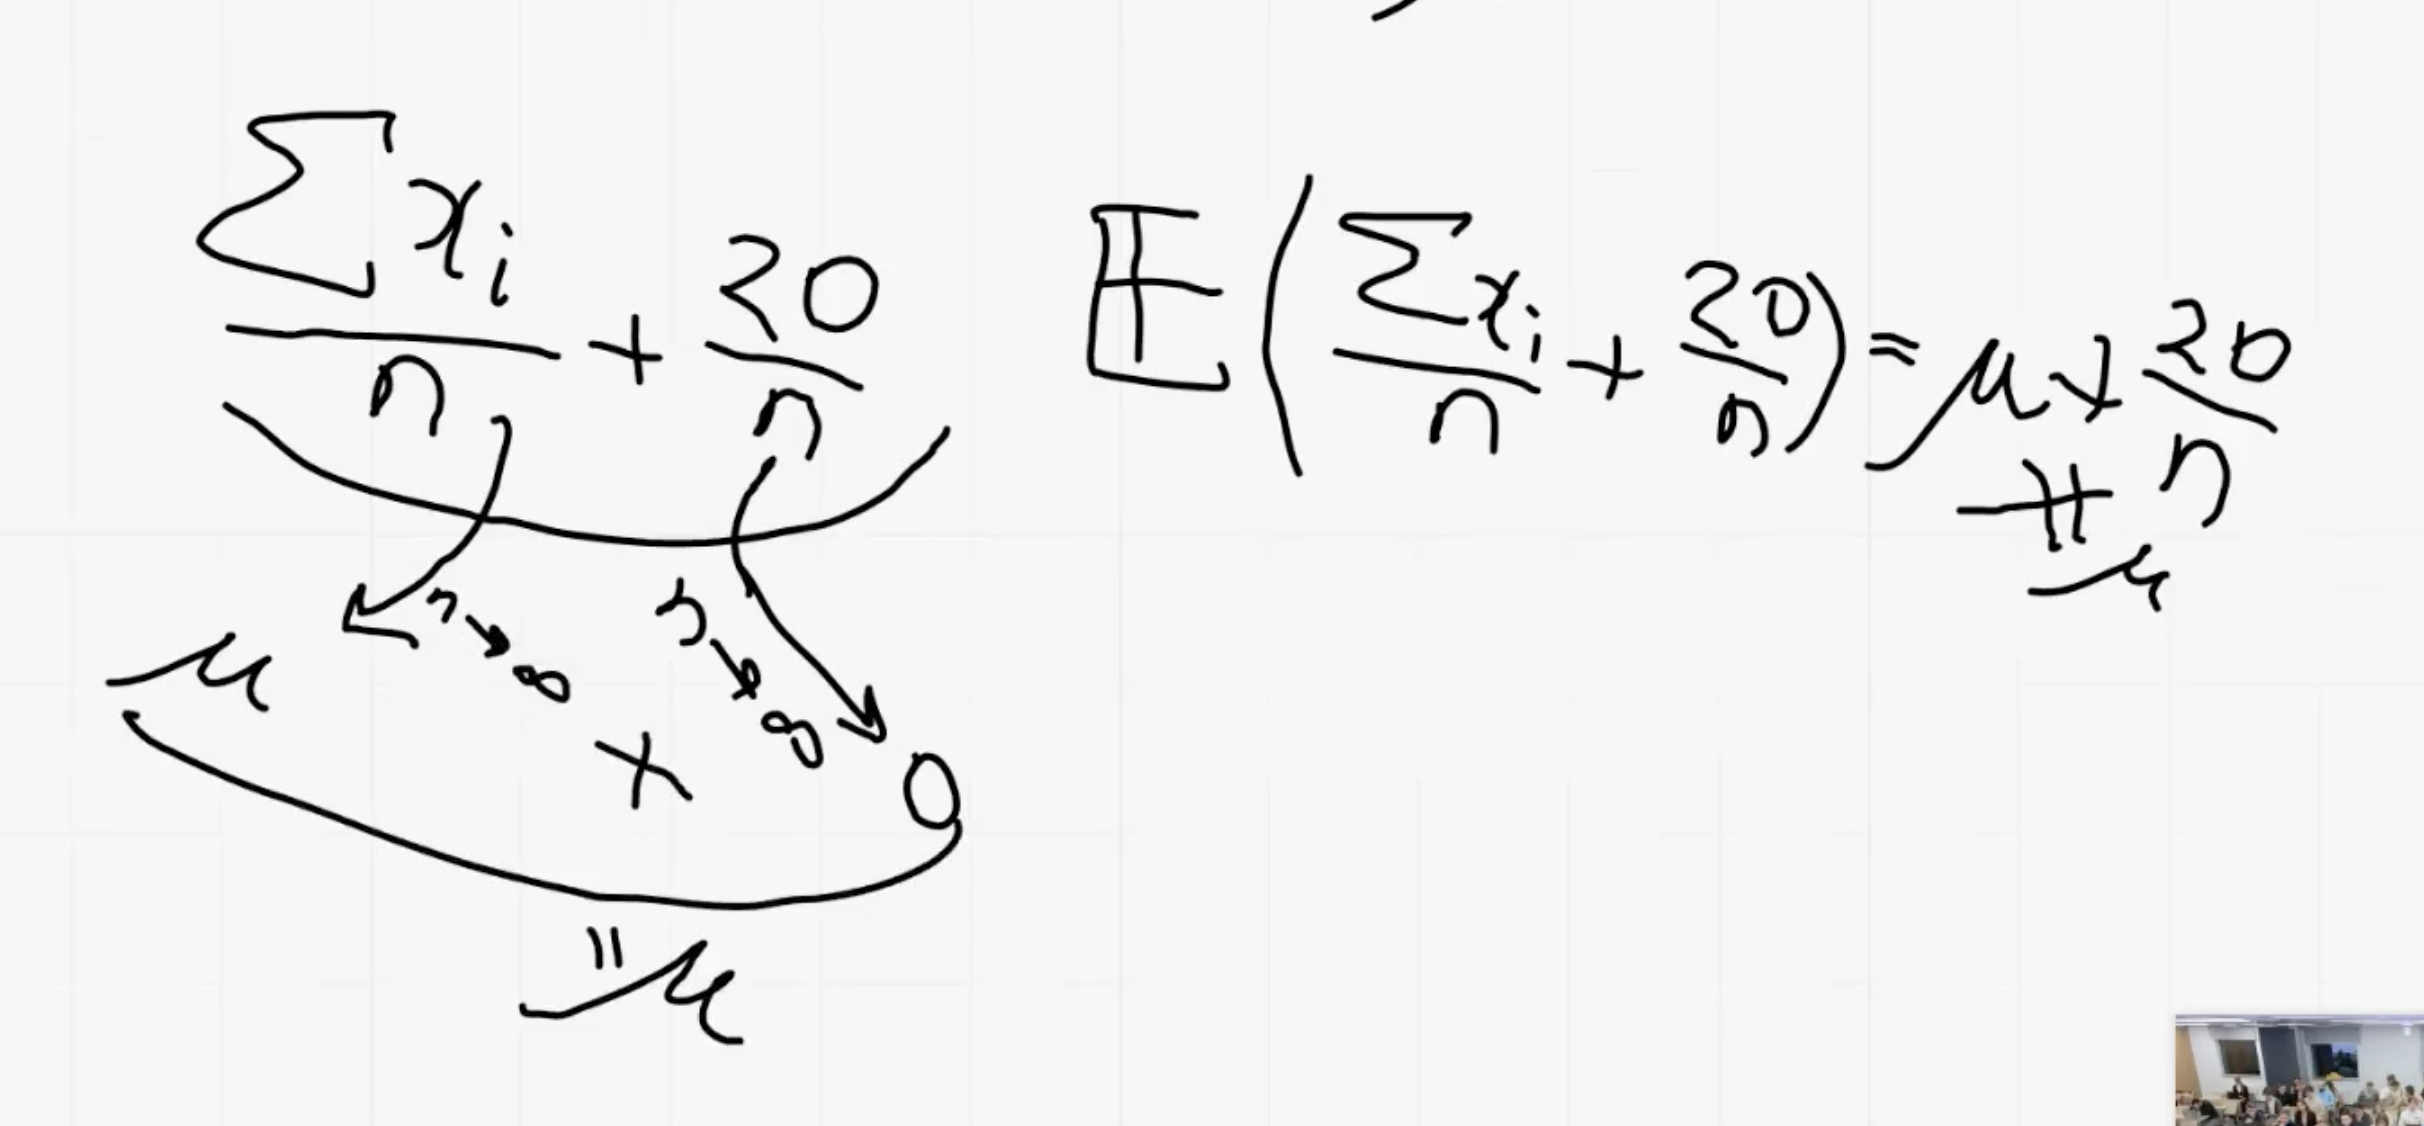 ∑xᵢ/n + 20/n
n→∞ n→∞
μ + 0
= μ
E(∑xᵢ/n + 20/n) = μ + 20/n
≠
μ